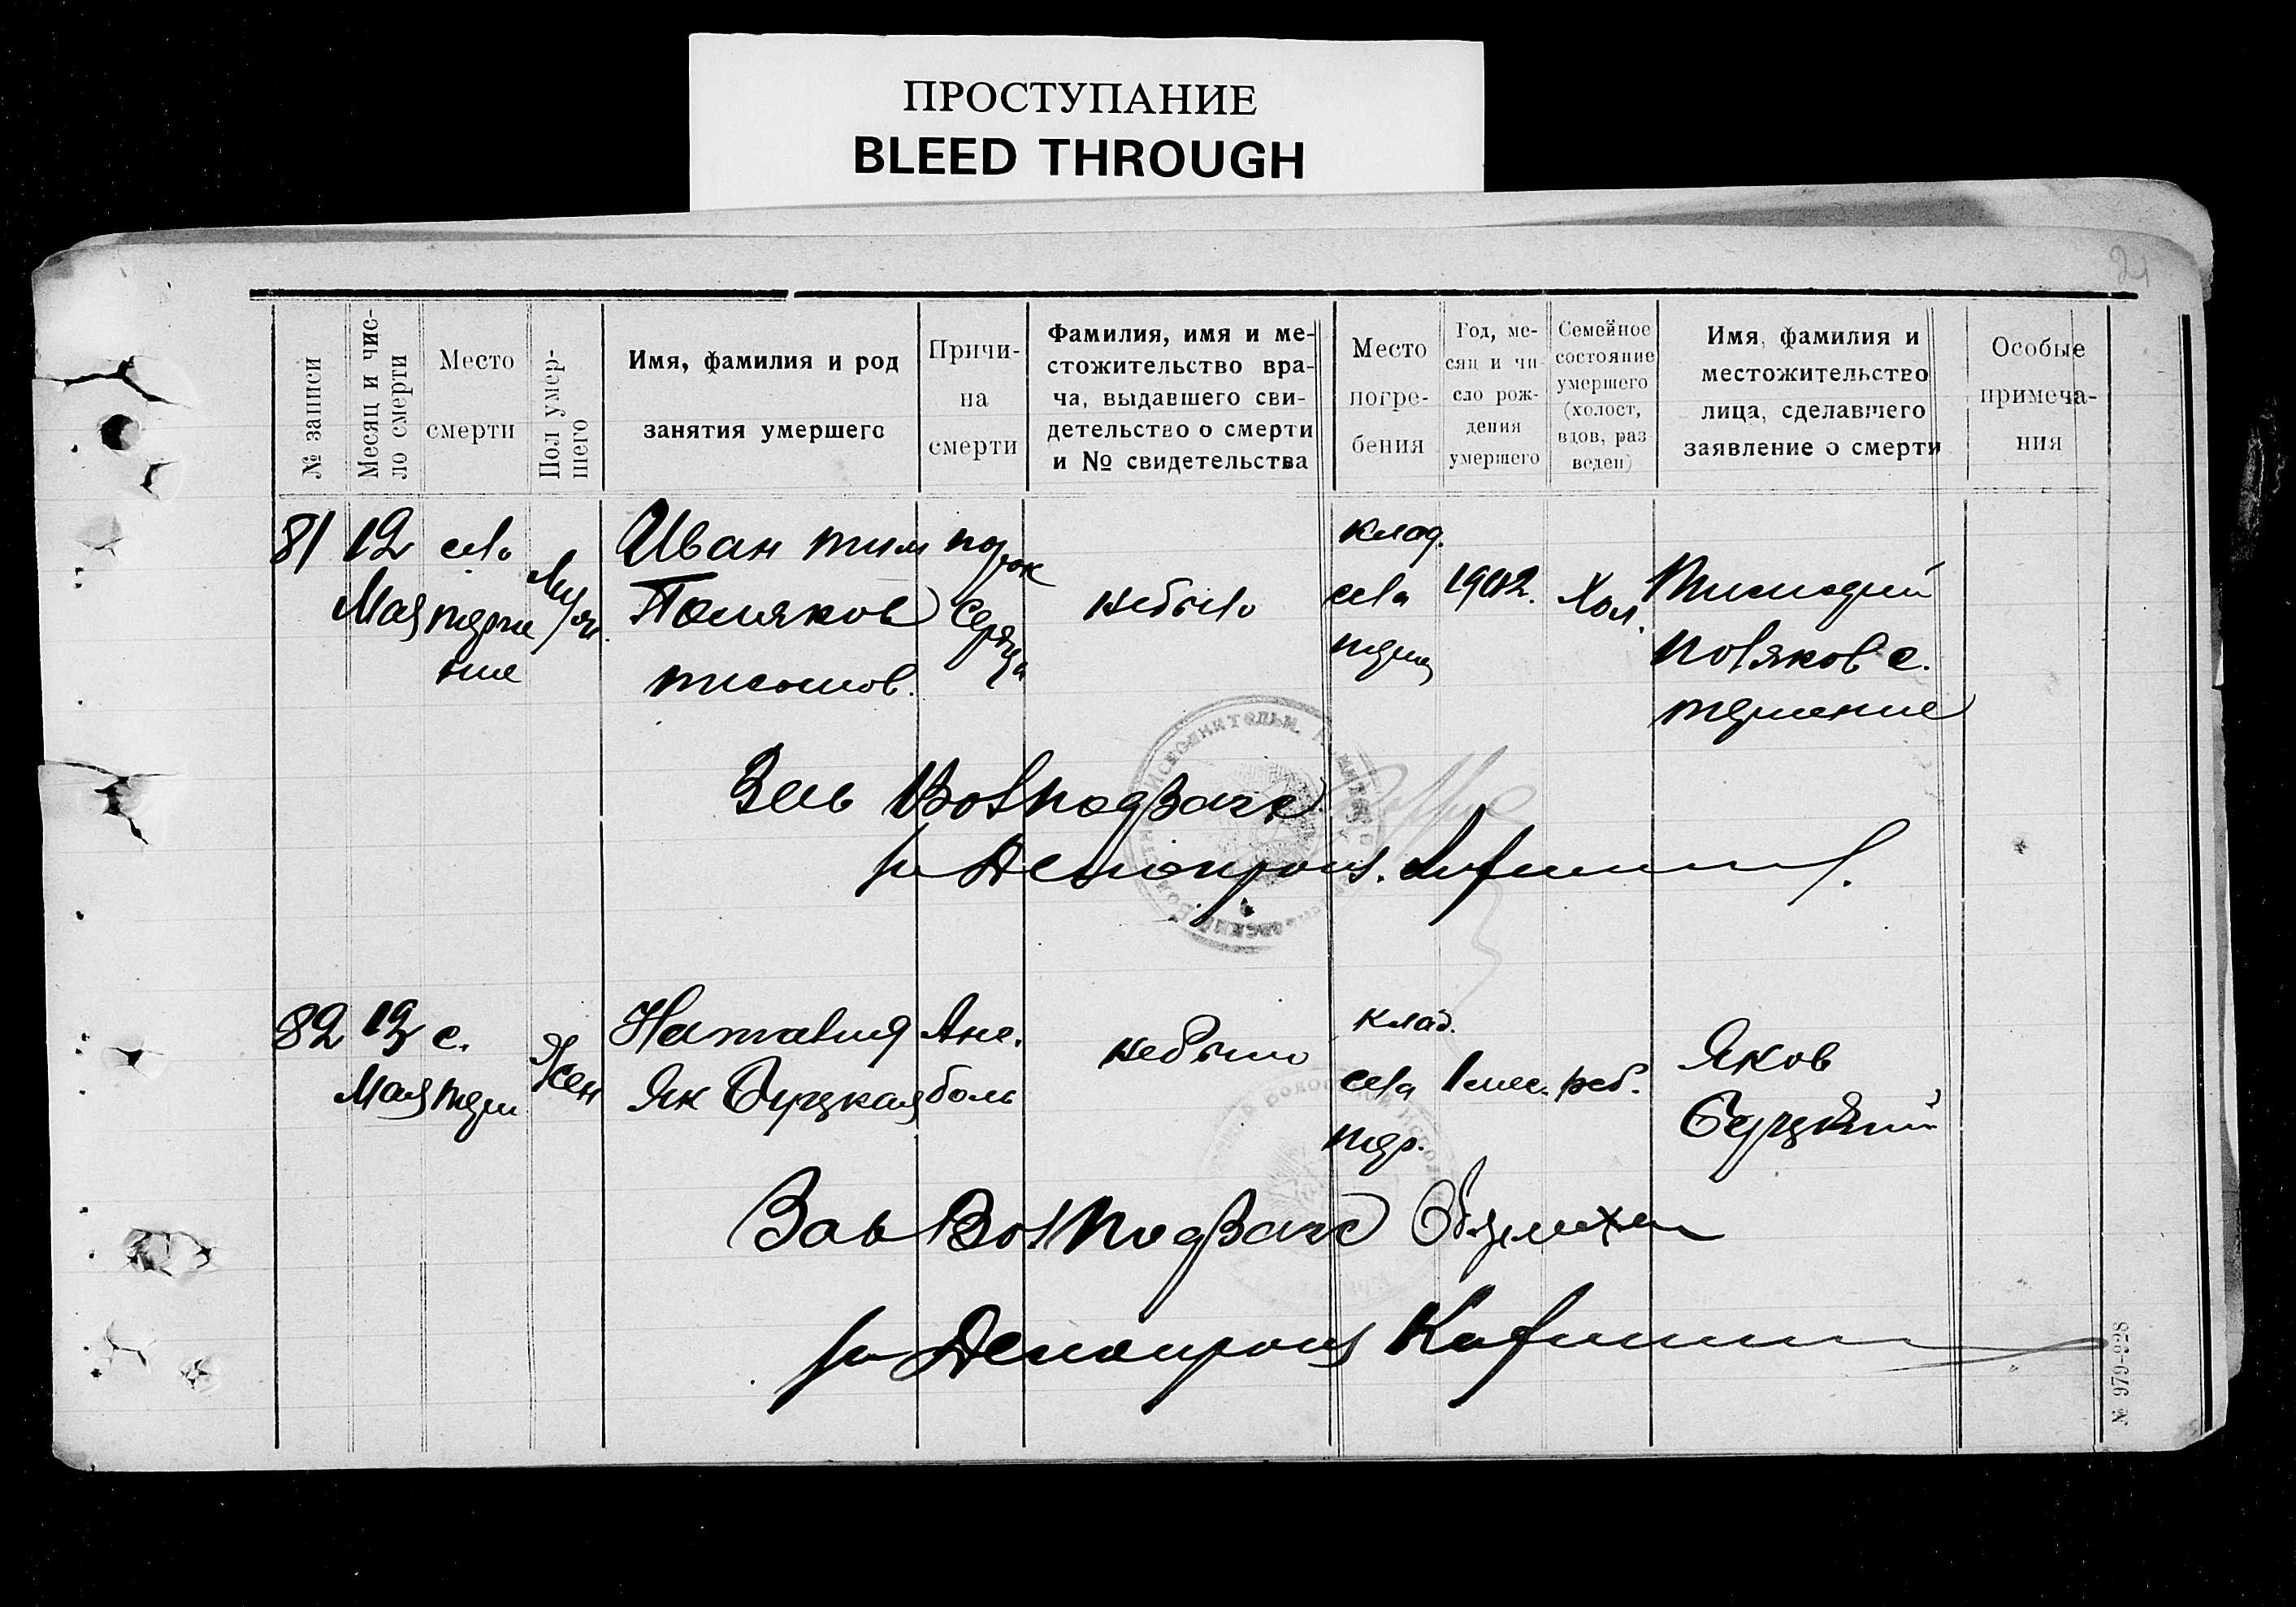 ПРОСТУПАНИЕ
BLEED THROUGH
21
№ записи
Месяц и чис-
ло смерти
Место
смерти
Пол умер-
шего
Имя, фамилия и род
занятия умершего
Причи-
на
смерти
Фамилия, имя и ме-
стожительство вра-
ча, выдавшего сви-
детельство о смерти
и № свидетельства
Место
погре-
бения
Год, ме-
сяц и чи-
сло рож-
дения
умершего
Семейное
состояние
умершего
(холост,
вдов, раз
веден)
Имя, фамилия и
местожительство
лица, сделавшего
заявление о смерти
Особые
примеча-
ния
81
12
Мая
село
Муж.
Иван Тим
Поляков
порок
сердца
небыло
клад.
села
1902.
Хол.
Тимофей
Поляков с.
Зав ВолподЗагс
82
13
Мая
с.
Жен
Наталия
Як Буцкая
боль
небыло
клад.
села
1 мес.
реб.
Яков
Буцкий
Зав ВолПодЗагс
№ 979-228